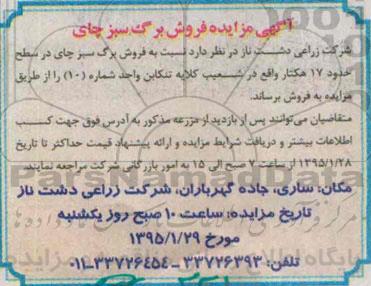 آگهی مزایده فروش برگ سبز چای
شرکت زراعی دشت ناز در نظر دارد نسبت به فروش برگ سبز چای در سطح
حدود ۱۷ هکتار واقع در شعیب کلایه تنکابن واحد شماره (۱۰) را از طریق
مزایده به فروش برساند.
متقاضیان می‌توانند پس از بازدید از مزرعه مذکور به آدرس فوق جهت کسب
اطلاعات بیشتر و دریافت شرایط مزایده و ارائه پیشنهاد قیمت حداکثر تا تاریخ
۱۳۹۵/۱/۲۸ از ساعت ۷ صبح الی ۱۵ به امور بازرگانی شرکت مراجعه نمایند.
مکان: ساری، جاده گهرباران، شرکت زراعی دشت ناز
تاریخ مزایده: ساعت ۱۰ صبح روز یکشنبه
مورخ ۱۳۹۵/۱/۲۹
تلفن: ۳۳۷۲۶۳۹۳ - ۳۳۷۲۶۴۵۴-۰۱۱
ParsNamadData